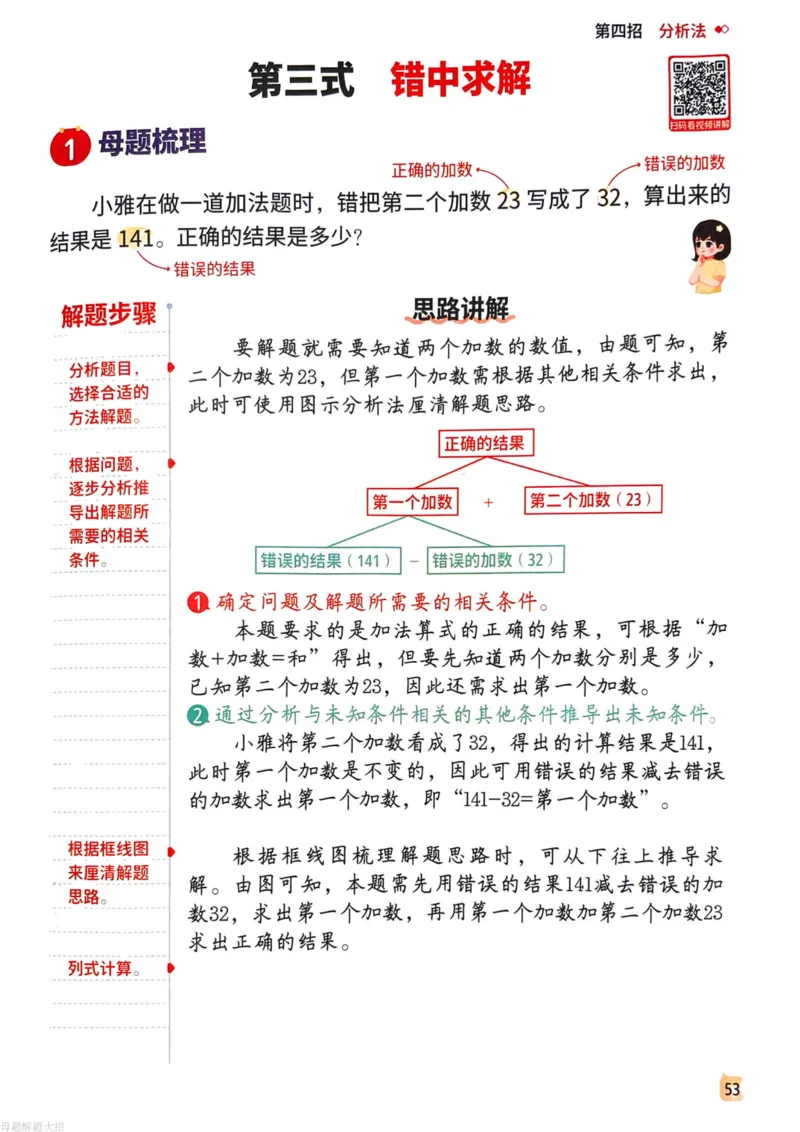 第四招 分析法
第三式 错中求解
扫码看视频讲解
1 母题梳理
正确的加数
错误的加数
小雅在做一道加法题时，错把第二个加数 23 写成了 32，算出来的
结果是 141。正确的结果是多少？
错误的结果
解题步骤
思路讲解
分析题目，
选择合适的
方法解题。
要解题就需要知道两个加数的数值，由题可知，第
二个加数为23，但第一个加数需根据其他相关条件求出，
此时可使用图示分析法厘清解题思路。
根据问题，
逐步分析推
导出解题所
需要的相关
条件。
正确的结果
第一个加数 + 第二个加数（23）
错误的结果（141） - 错误的加数（32）
1 确定问题及解题所需要的相关条件。
本题要求的是加法算式的正确的结果，可根据“加
数+加数=和”得出，但要先知道两个加数分别是多少，
已知第二个加数为23，因此还需求出第一个加数。
2 通过分析与未知条件相关的其他条件推导出未知条件。
小雅将第二个加数看成了32，得出的计算结果是141，
此时第一个加数是不变的，因此可用错误的结果减去错误
的加数求出第一个加数，即“141-32=第一个加数”。
根据框线图
来厘清解题
思路。
根据框线图梳理解题思路时，可从下往上推导求
解。由图可知，本题需先用错误的结果141减去错误的加
数32，求出第一个加数，再用第一个加数加第二个加数23
求出正确的结果。
列式计算。
53
母题解题大招